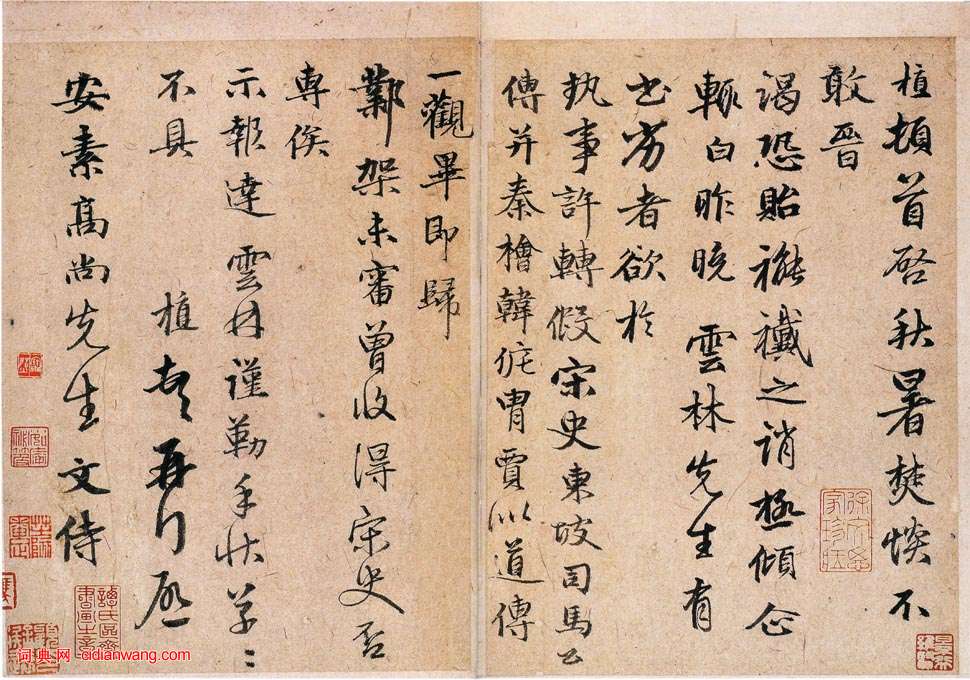 植頓首啓秋暑焚惔不
敢晉
謁恐貽褦襶之誚極傾企
輒白昨晚 雲林先生有
書者欲於
執事許轉假宋史東坡司馬公
傳并秦檜韓侂胄賈似道傳
一觀畢即歸
鄴架未審曾收得宋史否
專俟
示報達 雲林謹勒手狀草〻
不具 植頓首再拜啓
安素高尚先生 文侍
譚氏區齋書畫之章
词典网 cidianwang.com